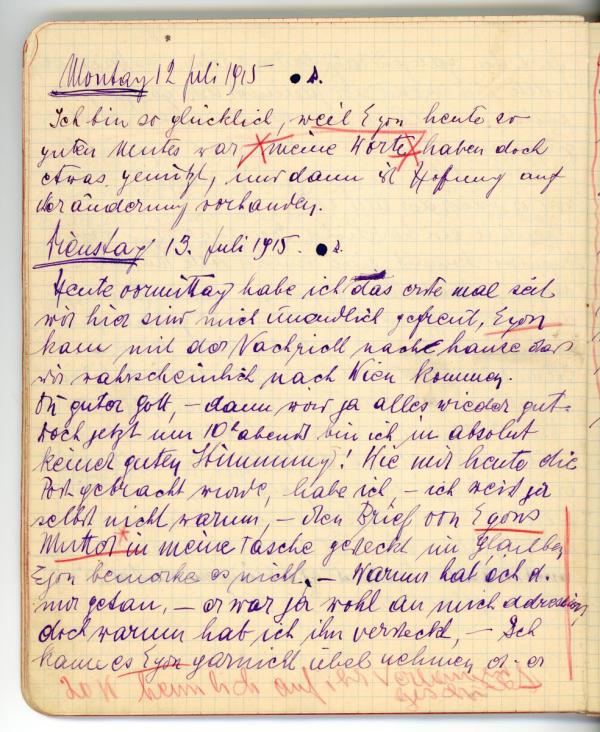 Montag 12 Juli 1915
Ich bin so glücklich, weil Egon heute so
guten Mutes war meine Worte haben doch
etwas genützt, nur dann ist Hofnung auf
Veränderung vorhanden.
Dienstag 13. Juli 1915.
Heute vormittag habe ich das erste mal seit
wir hier sind mich unendlich gefreut, Egon
kam mit der Nachricht nach hause dass
wir wahrscheinlich nach Wien kommen.
Du guter Gott, – dann wär ja alles wieder gut.
Doch jetzt um 10h abends bin ich in absolut
keiner guten Stimmung! Wie mir heute die
Post gebracht wurde, habe ich, – ich weiss ja
selbst nicht warum, – den Brief von Egons
Mutter in meine Tasche gesteckt im Glauben
Egon bemerke es nicht. – Warum hab ich d.
nur getan, – er war ja wohl an mich adressiert
doch warum hab ich ihn versteckt, – Ich
kann es Egon garnicht übel nehmen d. er
20 K heimlich auf ihr Verlangen
geschickt